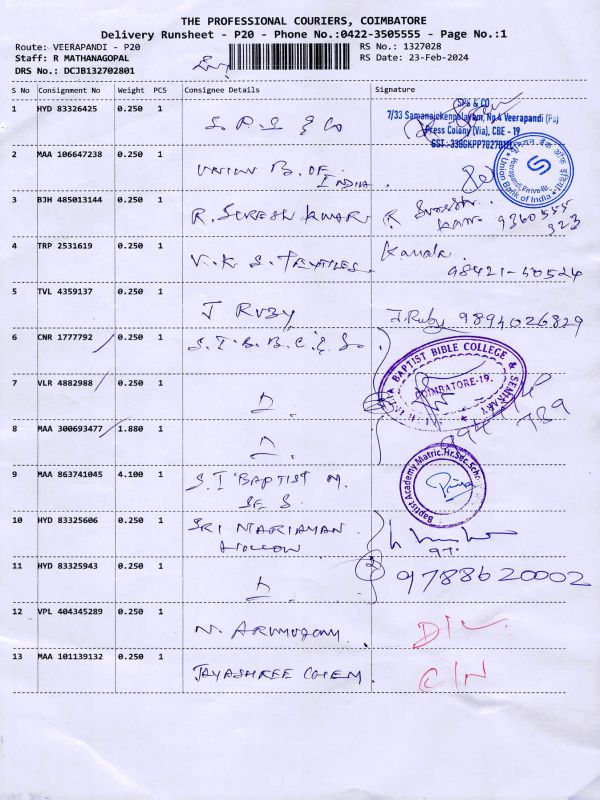 THE PROFESSIONAL COURIERS, COIMBATORE
Delivery Runsheet - P20 - Phone No.:0422-3505555 - Page No.:1
Route: VEERAPANDI - P20
RS No.: 1327028
Staff: R MATHANAGOPAL
RS Date: 23-Feb-2024
DRS No.: DCJB132702801
S No Consignment No Weight PCS Consignee Details Signature
1 HYD 83326425 0.250 1 S.P.S & Co
SPS & CO
7/33 Samanaickenpalayam, No.4 Veerapandi (Po)
Press Colony (Via), CBE - 19
2 MAA 106647238 0.250 1 UNION B. OF
INDIA.
Union Bank of India
3 BJH 485013144 0.250 1 R. SURESH KUMAR R Suresh
Kumar. 9360555
323
4 TRP 2531619 0.250 1 V.K.S. TEXTILES. Kamala.
98421-60524
5 TVL 4359137 0.250 1 J RUBY J.Ruby 9894026829
6 CNR 1777792 0.250 1 S.I.B.B.C. &
BAPTIST BIBLE COLLEGE & SEMINARY
COIMBATORE-19.
7 VLR 4882988 0.250 1
789
8 MAA 300693477 1.880 1
9 MAA 863741045 4.100 1 S.I BAPTIST M.
Se. S.
Baptist Academy Matric.Hr.Sec.School
Priya
10 HYD 83325606 0.250 1 SRI MARIAMAN
HOLLOW
11 HYD 83325943 0.250 1 2 9788620002
12 VPL 404345289 0.250 1 N. ARUMUGAM. D/L
13 MAA 101139132 0.250 1 JAYASHREE CHEM. C/N